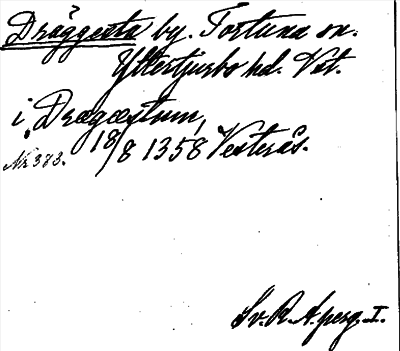 Dräggesta by. Tortuna sn.
Yttertjurbo hd. Vstl.
i Drægæstum,
18/8 1358 Vesterås.
Nr 373.
Sv. R. A. perg. I.